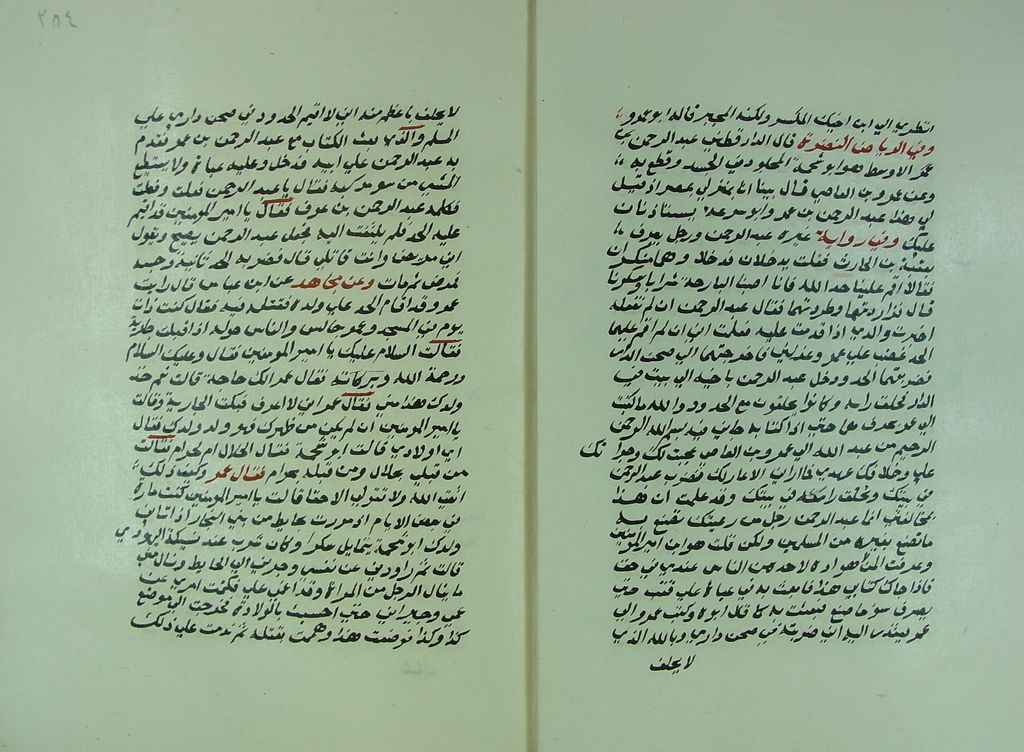 انظري الي ابن اخيك المكسر ولكنه المجبر قاله ابو عمرو
وفي الرياض النضرة قال الدارقطني عبد الرحمن بن
عمر الاوسط هو ابو شحمة المجلود في الخمر وقطع به
وعن عمرو بن العاص قال بينا انا بمنزلي بمصر اذ قيل
لي هذا عبد الرحمن بن عمر وابو سروعة يستاذنان
عليك وفي رواية غيره عبد الرحمن ورجل يعرف
بعقبة بن الحارث فقلت يدخلان فدخلا وهما منكسران
فقالا اقم علينا حد الله فانا اصبنا البارحة شرابا وسكرنا
قال فزبرتهما وطردتهما فقال عبد الرحمن ان لم تفعله
اخبرت والدي اذا قدمت عليه فعلمت اني ان لم اقم عليهما
الحد غضب علي عمر وعزلني فاخرجتهما الي صحن الدار
فضربتهما الحد ودخل عبد الرحمن باخيه الي بيت في
الدار فحلق راسه وكانوا يحلقون مع الحدود والله ما كتبت
الي عمر بحرف مما حتي اذا كتابه جاني فيه بسم الله الرحمن
الرحيم من عبد الله الي عمرو بن العاص عجبت لك وجراتك
علي وخلافك عهدي فما اراني الا عازلك تضرب عبد الرحمن
في بيتك وتحلق راسه في بيتك وقد علمت ان هذا
يخالفني انما عبد الرحمن رجل من رعيتك تصنع به
ما تصنع بغيره من المسلمين ولكن قلت هو ابن امير المومنين
وعرفت ان لا هوادة لاحد من الناس عندي في حق
فاذا جاك كتابي هذا فابعث به في عباة علي قتب حتي
يعرف سو ما صنع فبعثت به كما قال ابوه وكتبت عمرو الي
عمر يعتذر اليه اني ضربته في صحن داري وبالله الذي
لا يحلف
٢٨٤
لا يحلف باعظم منه اني لا اقيم الحدود في صحن داري علي
المسلم والذمي بعث الكتاب مع عبد الرحمن بن عمر فقدم
به عبد الرحمن علي ابيه فدخل وعليه عباة ولا يستطيع
المشي من سو مركبه فقال يا عبد الرحمن فعلت وفعلت
فكلمه عبد الرحمن بن عوف فقال يا امير المومنين قد اقيم
عليه الحد فلم يلتفت اليه فجعل عبد الرحمن يصيح ويقول
اني مريض وانت قاتلي قال فضربه الحد ثانية وحبسه
فمرض ثم مات وعن مجاهد عن ابن عباس قال رايت
عمر وقد اقام الحد علي ولده فقتله فيه فقال كنت ذات
يوم في المسجد وعمر جالس والناس حوله اذ اقبلت جارية
فقالت السلام عليك يا امير المومنين فقال وعليك السلام
ورحمة الله وبركاته فقال عمر الك حاجة قالت نعم خذ
ولدك هذا مني فقال عمر اني لا اعرفه فبكت الجارية وقالت
يا امير المومنين ان لم يكن من ظهرك فهو ولد ولدك فقال
اي اولادي قالت ابو شحمة فقال ابحلال ام بحرام فقالت
من قبلي بحلال ومن قبله بحرام فقال عمر وكيف ذلك
اتقي الله ولا تقولي الا حقا قالت يا امير المومنين كنت مارة
في بعض الايام اذ مررت بحايط من بني النجار اذ اتاني
ولدك ابو شحمة يتمايل سكرا وكان شرب عند نسيكة اليهودي
قالت ثم راودني عن نفسي وجرني الي الحايط ونال مني
ما ينال الرجل من المراة وقد اغمي علي فكتمت امري عن
عمي وجيراني حتي احسست بالولادة فخرجت الي موضع
كذا وكذا فوضعت هذا وهممت بقتله ثم ندمت علي ذلك